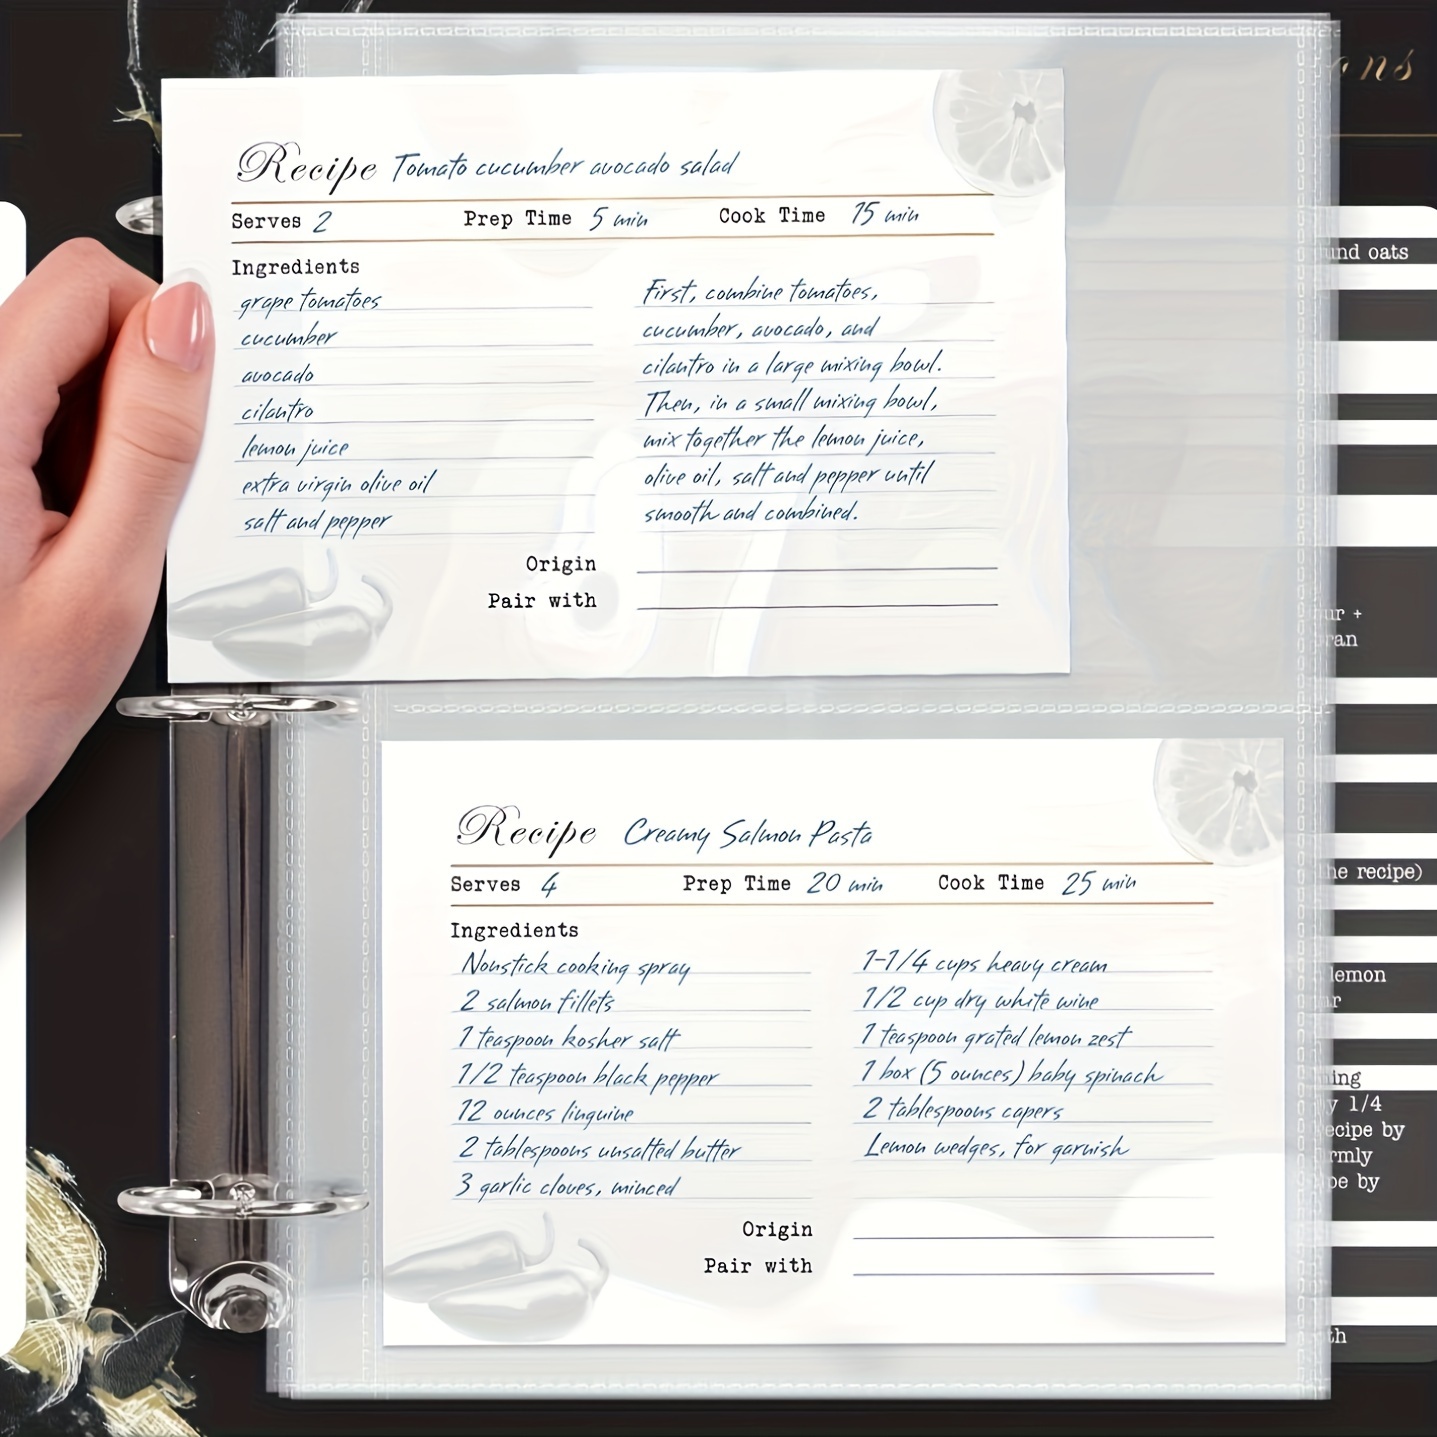 ons
Recipe Tomato cucumber avocado salad
Serves 2 Prep Time 5 min Cook Time 15 min
Ingredients
grape tomatoes
cucumber
avocado
cilantro
lemon juice
extra virgin olive oil
salt and pepper
First, combine tomatoes,
cucumber, avocado, and
cilantro in a large mixing bowl.
Then, in a small mixing bowl,
mix together the lemon juice,
olive oil, salt and pepper until
smooth and combined.
Origin
Pair with
Recipe Creamy Salmon Pasta
Serves 4 Prep Time 20 min Cook Time 25 min
Ingredients
Nonstick cooking spray
2 salmon fillets
1 teaspoon kosher salt
1/2 teaspoon black pepper
12 ounces linguine
2 tablespoons unsalted butter
3 garlic cloves, minced
1-1/4 cups heavy cream
1/2 cup dry white wine
1 teaspoon grated lemon zest
1 box (5 ounces) baby spinach
2 tablespoons capers
Lemon wedges, for garnish
Origin
Pair with
und oats
ur +
ran
he recipe)
lemon
ar
ing
y 1/4
ecipe by
rmly
pe by
th